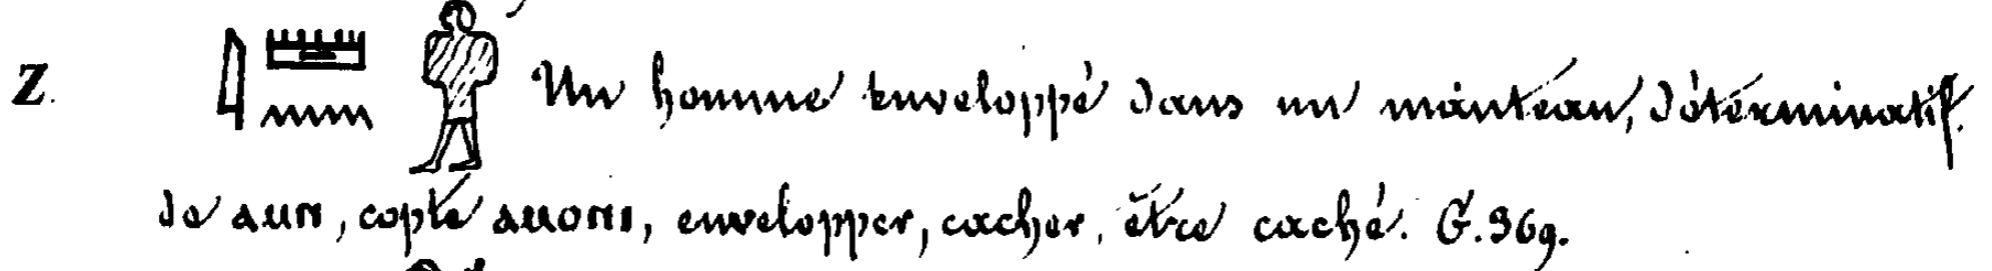 Z. 𓇋𓏠𓈖 Un homme enveloppé dans un manteau, déterminatif.
de ⲁⲙⲛ, copte ⲁⲙⲟⲛⲓ, envelopper, cacher, être caché. G. 369.